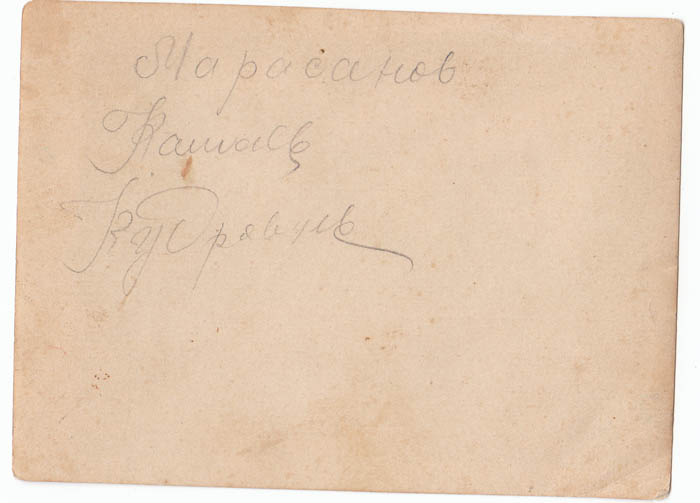 Марасанов
Кашаев
Кудрявцев